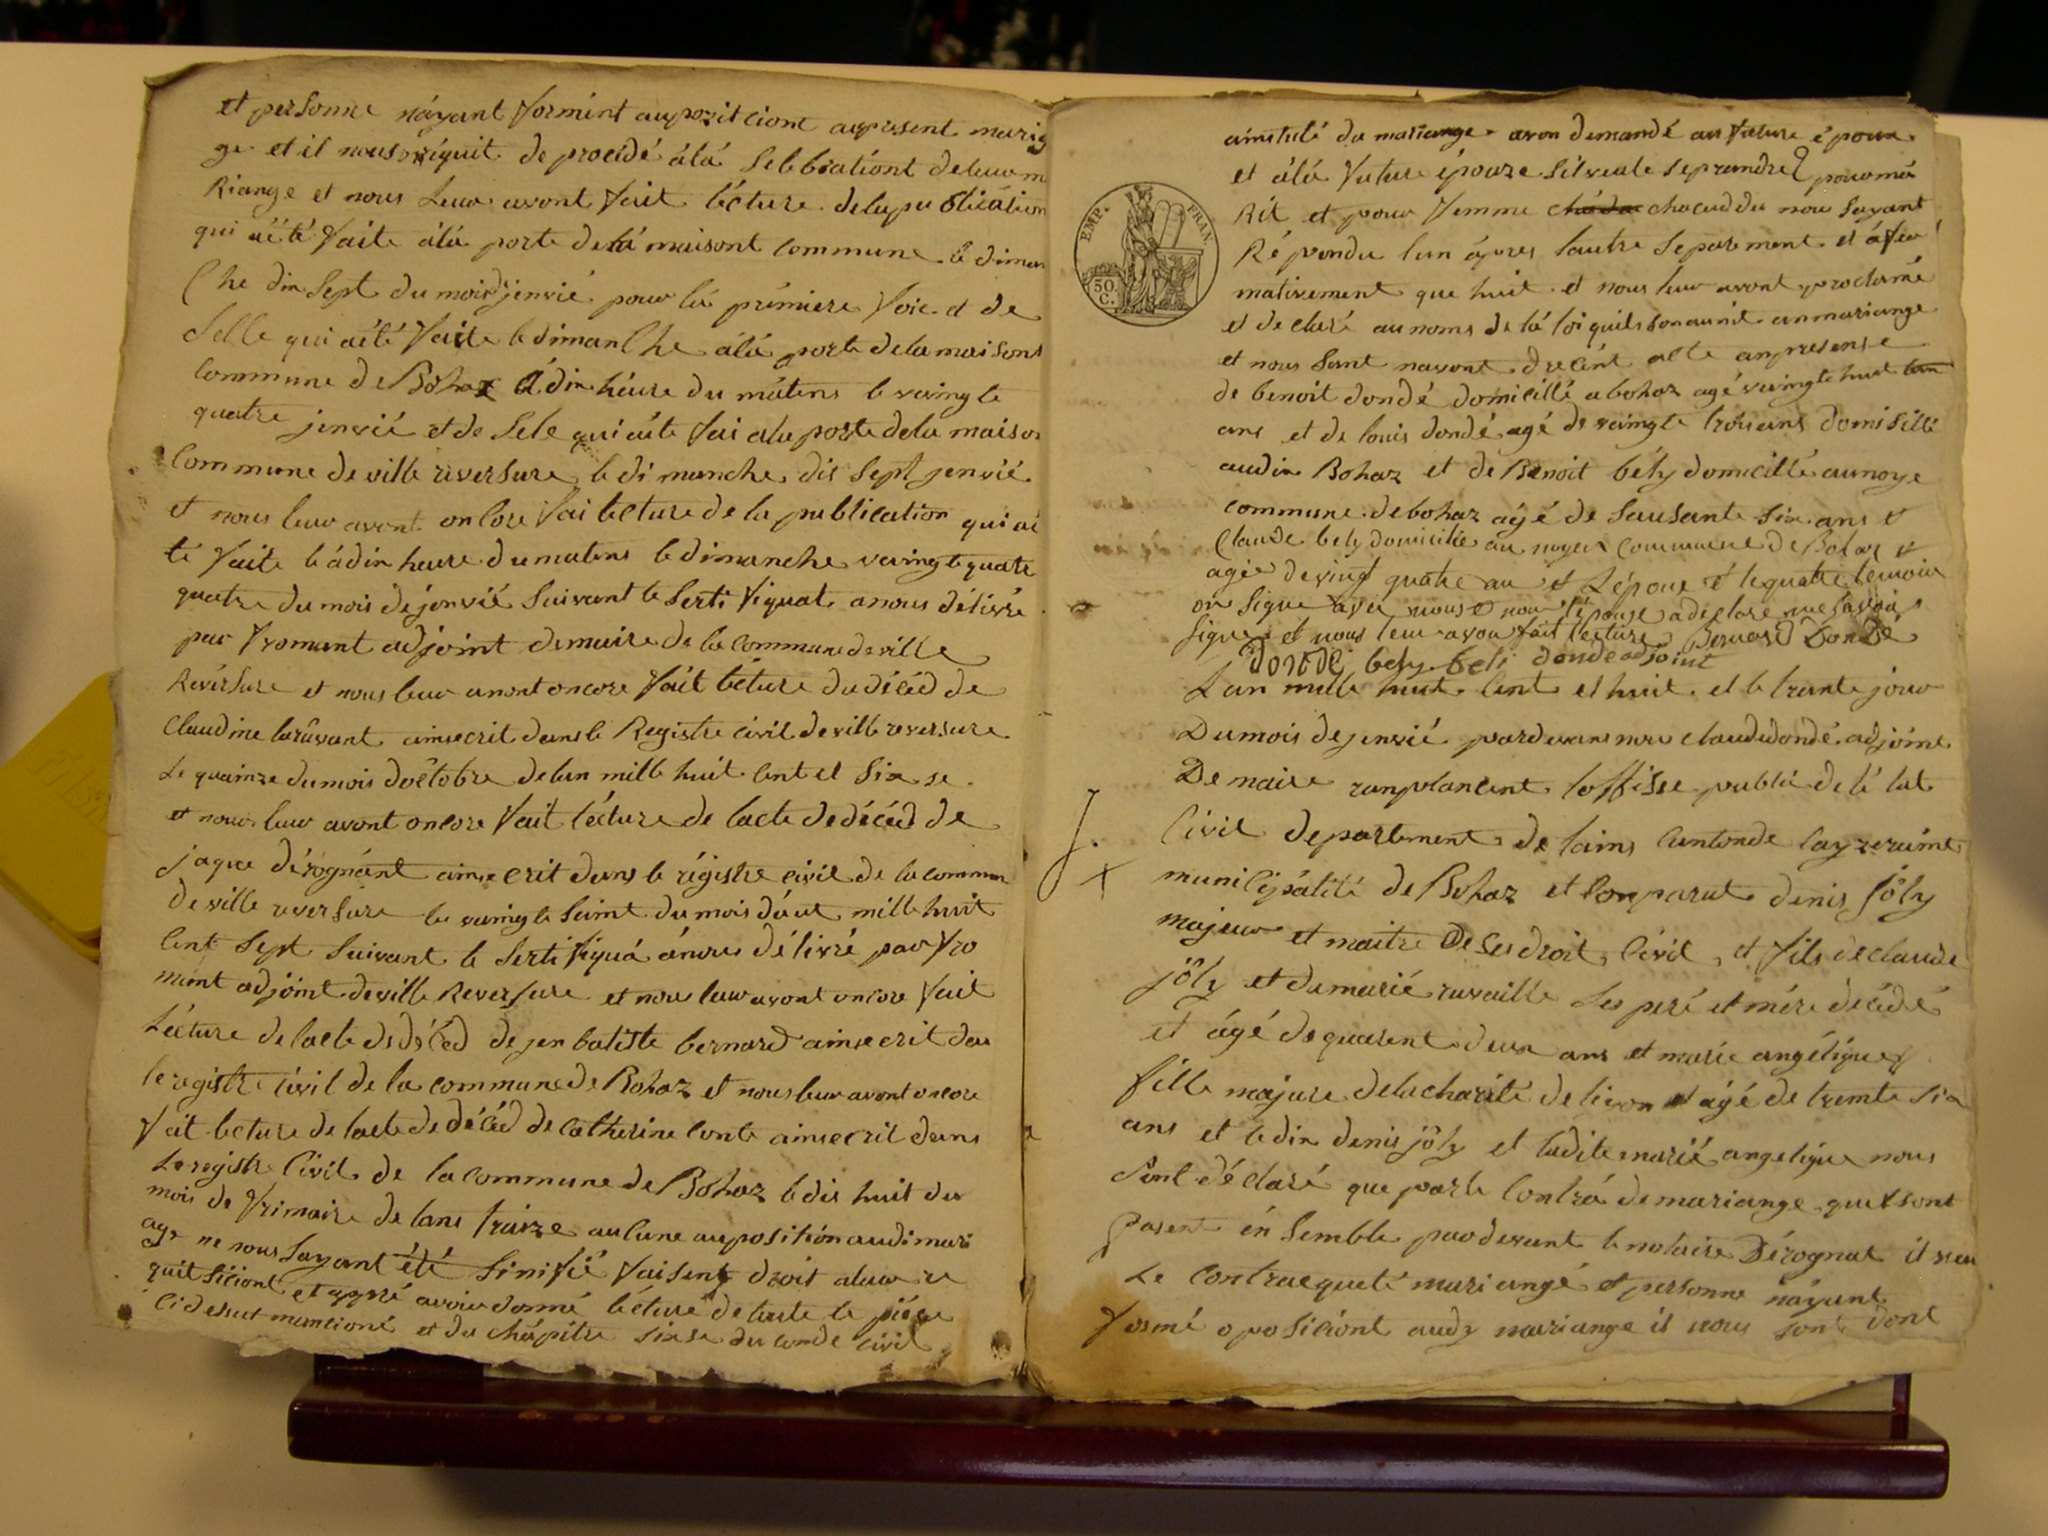 et personne náyant formént auposit ciont auprésent mariq
ge et il nous réquit de procédé álá selebrationt deleur m
Riange et nous leur avont fait lécture dela publicátion
qui áété faite álá porte de lá maisont commune le diman
che dix sept du mois djenvié pour lá prémiere fois et de
selle qui áété faite le dimanche álá porte dela maisont
commune de Bohaz á dix héure du mátens le veingte
quatre jenvié et de sele qui áeté fai ala porte dela maison
commune de ville reversure le dimanche dis sept jenvié
et nous leur avont oncore fai lecture de la publication qui aé
té faite le á dix heure du matens le dimanche veingte quatre
quatre du mois de jenvié suivant le serti fiquat anous délivré
par froment adjoint demaire de la commune de ville
Révérsure et nous leur avont oncore fait lécture du décéd de
Claudine larûvant ainsecrit dans le Registre civil de ville reversure
Le quainze du mois doêtobre delan mille huit cent et six se
et nous leur avont oncore fait lécture de lacte de décéd de
jaque dérognánt ainsecrit dans le régistre civil de la commun
de ville reversure le vaingte seint du mois dáut mille huit
cent sept suivant le serti fiquá ánous délivré par fro
ment adjoint deville Reversure et nous leur avont oncore fait
Lécture de lacte de décéd de jen batiste bernard ainsecrit dan
le registre civil de la commune de Bohaz et nous leur avont oncore
fait lecture de lacte de décéd de Catherine conte ainsecrit dans
Le registre Civil de la commune de Bohaz le dis huit du
mois de frimaire de lans traize aucune auposition audi mari
age ne nous sayant été sinifié faisent droit aleur re
quit siciont et appré avoir donné lécture de toute le piésse
ci dessut mencioné et du chápitre sixse du conde civil
EMP. FRAN.
50
C.
aintulé du mariange avon demandé au future époux
et álá future épouze silveule se prandre pour má
Rit et pour femme chacud du nou sayant
Répondu lun ápres lautre séparement et áfeir
mátivement que huit et nous leur avont proclamé
et declaré au noms de lá loi quils son aunit an mariange
et nous sant navont drecént acte an presense
de benoit dondé domicillé a bohaz agé vaingte huit
ans et de louis dondé agé de vaingte trois ans domisillé
audix Bohaz et de Benoit bély domicillé au noye
commune de bohaz agé de sausante six ans et
Claude bely domicilié au noyer commune de Bohaz et
agée de vingt quatre an et Lépoux et le quatre temoin
on signe avec nous et non lépouse a déclaré ne savoir
signer et nous leur avon fait lecture Bernard Dondé
dondé bely beli dondé adjoint
Lan mille huit cent et huit et le trante jour
Dumois de jenvié pardevans nou claude dondé adjoint
De maire ranplancent loffisse publié de lé tat
Civil departement de lains canton de Cayzeraint
J.
municipálité de Bohaz et Comparut denis jôly
majeur et maitre De ses droit Civil et fils de claude
jôly et du marié ravaille Les peré et mére décédé
et ágé de quarent deux ans et marie angélique
fille majure dela charité de lion et agé de trente six
ans et ledix denis jôly et ladite marié angelique nous
sont déclaré que parte Contrá de mariange quit sont
Pasent én semble pardevant le notaire Dérognat
Le Contracqueté mariangé et personne náyant
formé oposiciont audy mariange il nous sont dont